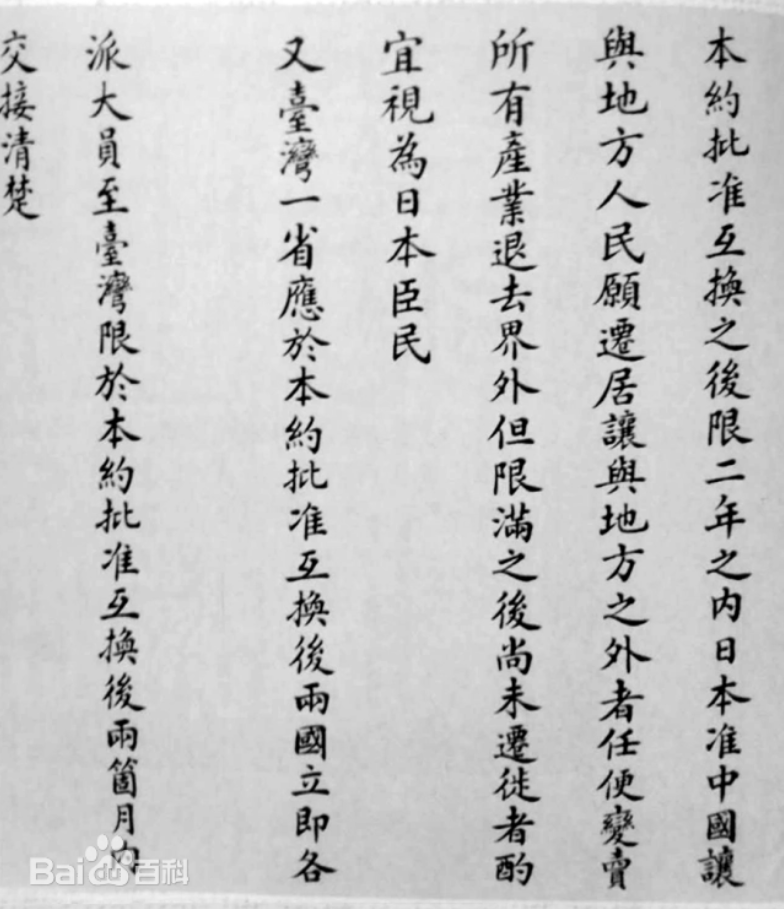 本約批准互換之後限二年之内日本准中國讓
與地方人民願遷居讓與地方之外者任便變賣
所有產業退去界外但限滿之後尚未遷徙者酌
宜視為日本臣民
又臺灣一省應於本約批准互換後兩國立即各
派大員至臺灣限於本約批准互換後兩箇月内
交接清楚
Bai百科